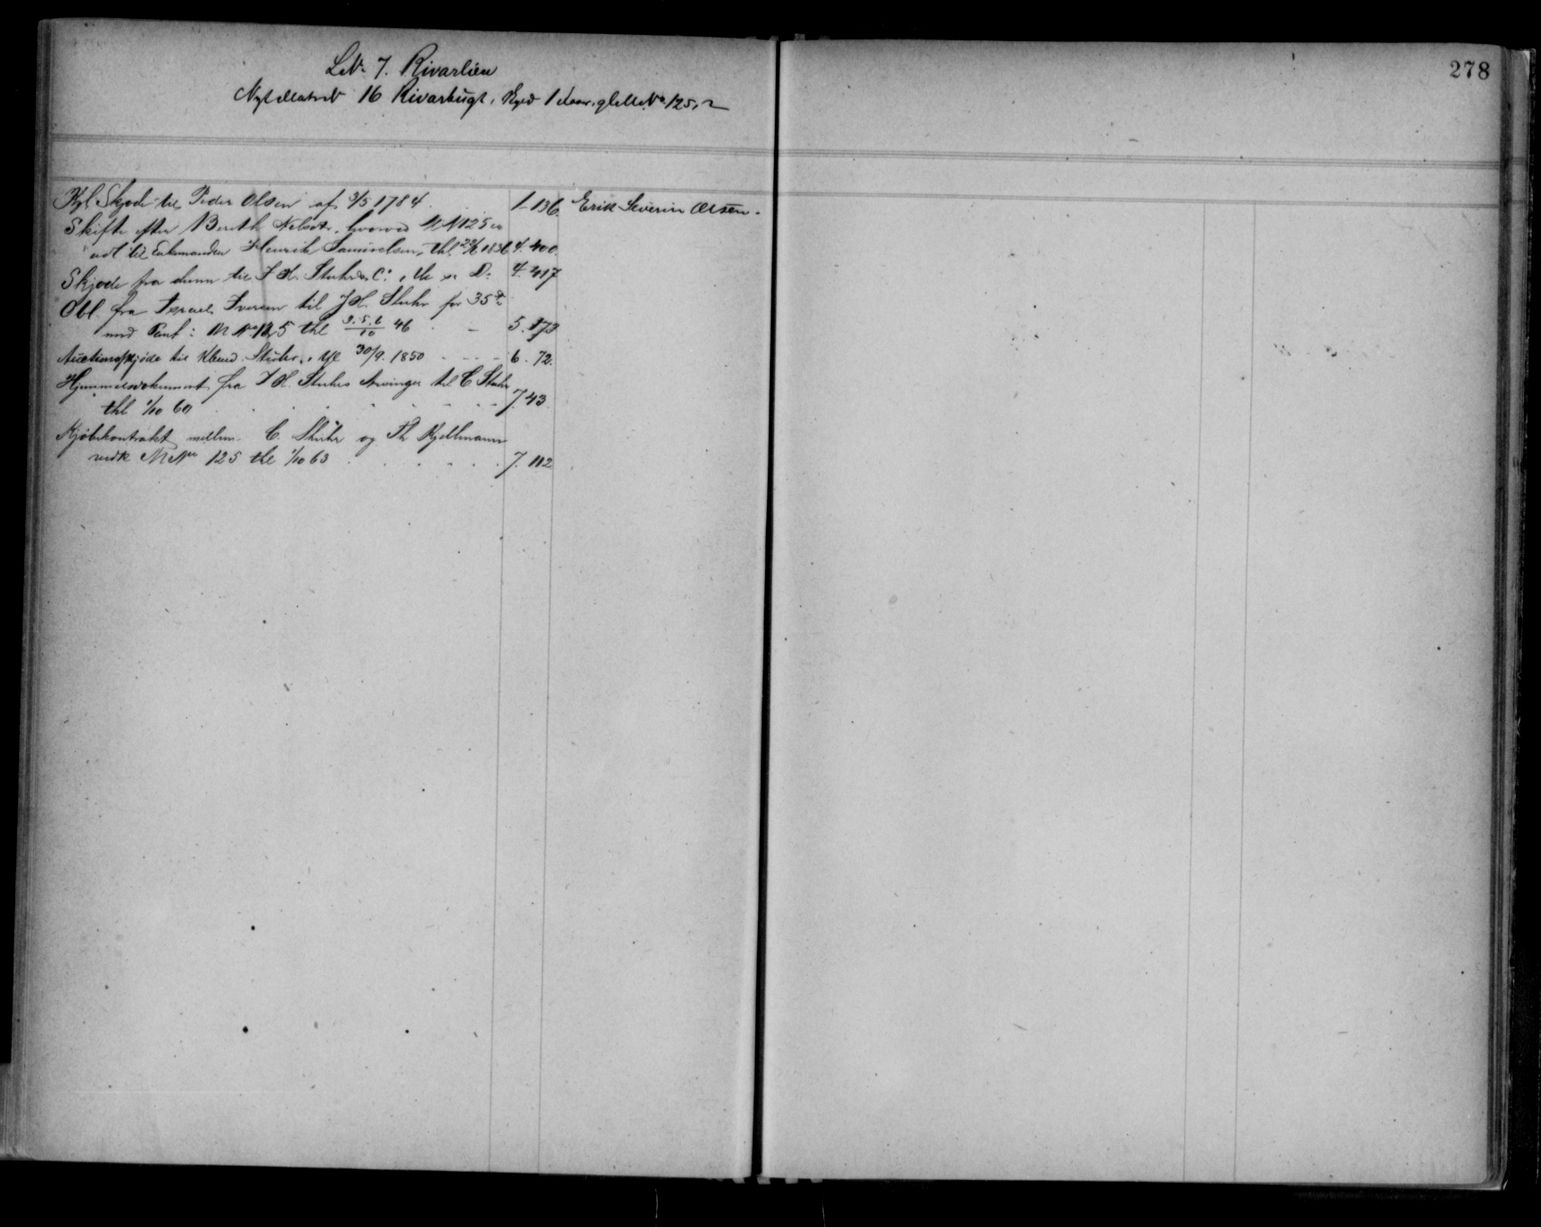 278
LNo 7. Rivarlien
Nyt Matr N 16 Rivarbugt, Skyld 1 gl M No 125,
Kgl Skjøde til Peder Olsen af 3/5 1784. 1-136 Erik Severin Olsen.
Skifte efter Berith Nelsdtr, hvorved M N 125 er
udl til Enkemanden Henrik Samuelsen, thl 1836 4. 400
Skjøde fra denne til J H. Stuhr & C: 4. 417
Obl fra Israel Iversen til J H. Stuhr for 35
med Pant i M No 125 thl 9.5.6/10 46 - 5. 173
Auctionsskjøde til Stuhr, thl 30/9. 1850 - - - 6. 72.
Hjemmelsdokument fra J H. Stuhrs Arvinger til C Stuhr
thl 1/10 60 7. 43
Kjøbekontrakt mellem C. Stuhr og Th Kjellmann
vedk M No 125 thl 1/10 63 7. 112